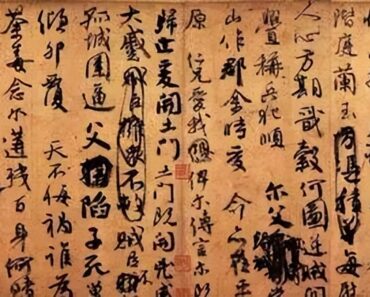 階庭蘭玉方憑積善每慰
人心方期戩穀何圖逆賊間
釁稱兵犯順 尔父
山作郡余時受 命亦在平
原 仁兄愛我俾尔傳言尔既
歸止爰開土門土門既開凶威
大蹙賊臣擁衆不救賊臣不
孤城圍逼父陷子死巢
傾卵覆 天不悔禍誰為
荼毒念尔遘殘百身何贖